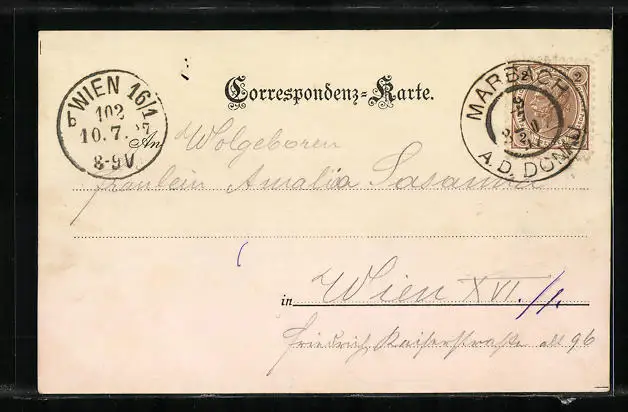 WIEN 16/1
b
102
10.7.97
8-9V
Correspondenz=Karte.
MARBACH
A.D. DONAU
2 2
An Wolgeboren
fräulein Amalia
in Wien XVI./1.
Friedrich Kaiserstraße 96